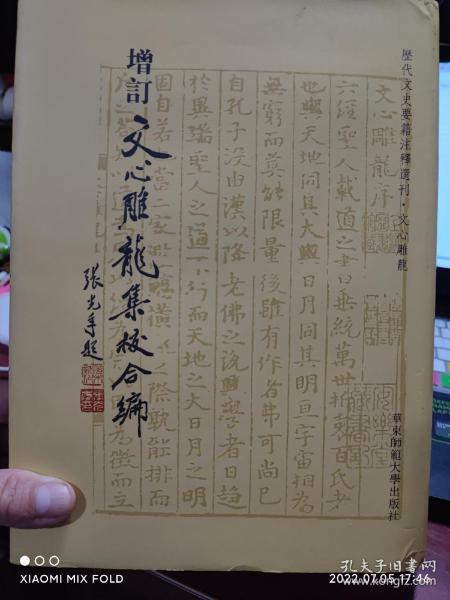 歷代文史要籍注釋選刊·文心雕龍
華東師範大學出版社
增訂文心雕龍集校合編
張光年題
文心雕龍序
六經聖人載道之書曰垂統萬世折衷百氏者
也與天地同其大與日月同其明亘宇宙相為
無窮而莫能限量後雖有作者弗可尚已
自孔子沒由漢以降老佛之說興學者日趨
於異端聖人之道不行而天地之大日月之明
固自若也當二家濫觴橫流之際孰能排而
為徵而立
XIAOMI MIX FOLD
2022.07.05 17:46
孔夫子旧书网